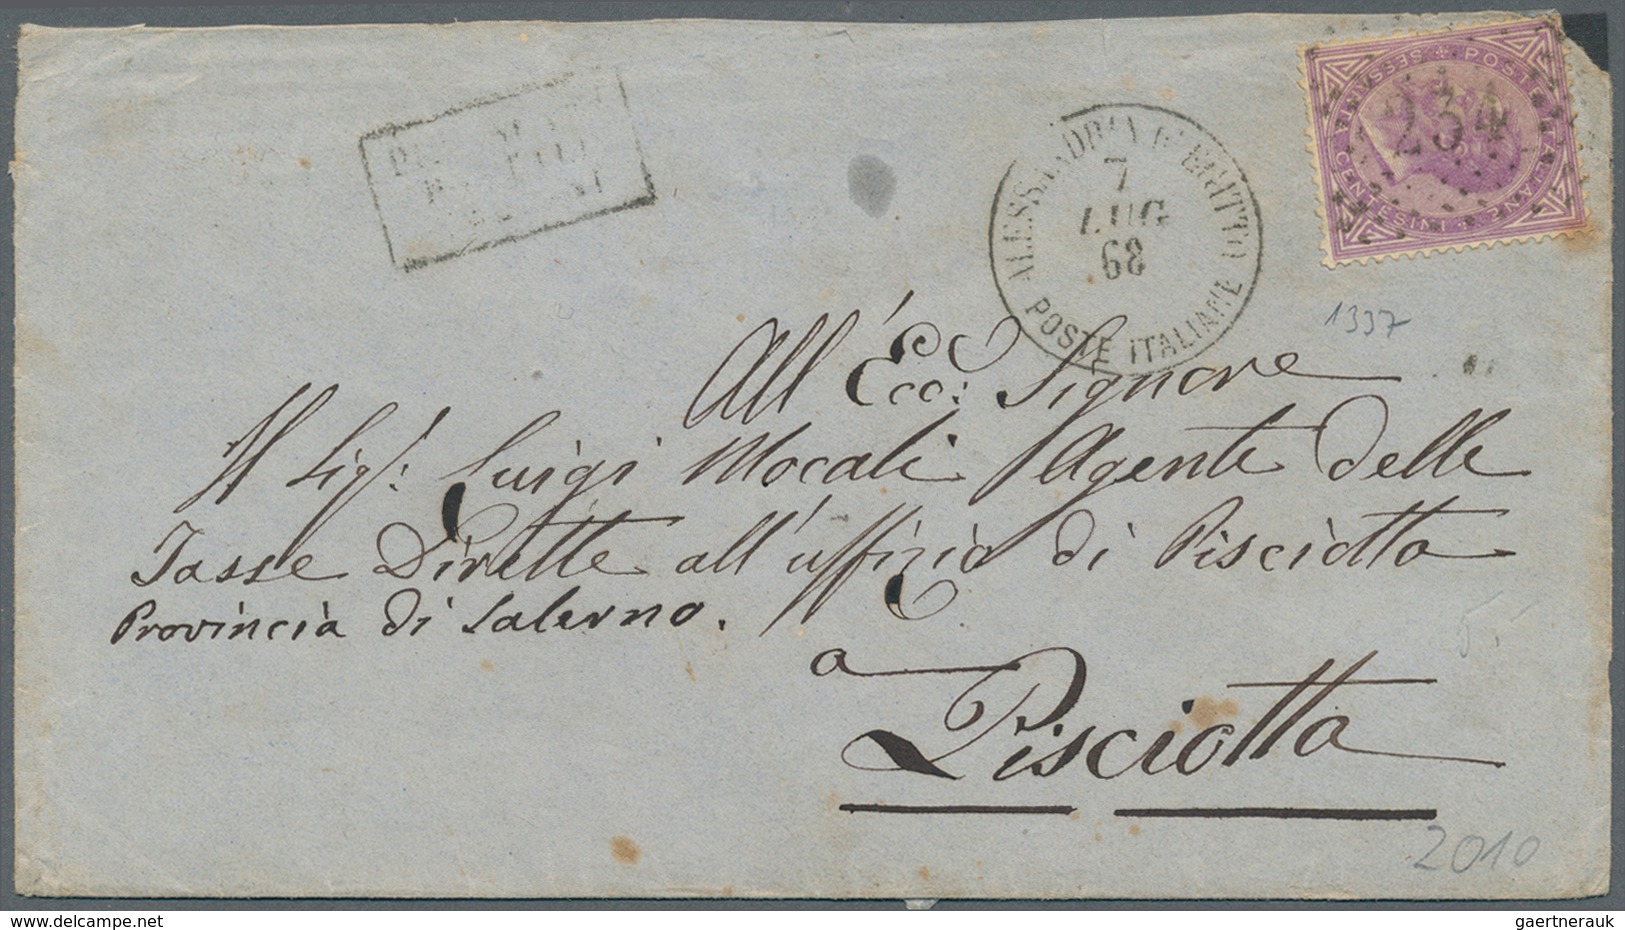 POSTE ITALIANE
CENT. SESSANTA
234
ALESSANDRIA D'EGITTO
7
LUG
68
POSTE ITALIANE
1337
All' Ecc: Signore
Il Sig: Luigi Mocali Agente delle
Tasse Dirette all' uffizio di Pisciotta
Provincia di Salerno.
a
Pisciotta
5.-
2010
www.delcampe.net
gaertnerauk